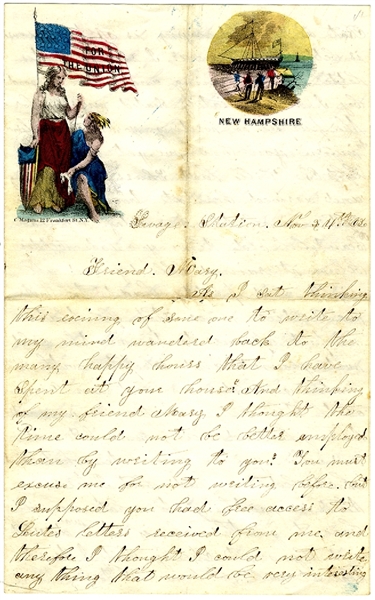 FOR
THE UNION
NEW HAMPSHIRE
C. Magnus 12 Frankfort St. N.Y.
Savage Station, Nov
Friend Mary,
As I sit thinking
this evening of some one to write to
my mind wanderd back to the
many happy hours that I have
spent at you house. And thinking
of my friend Mary I thought the
time could not be better employd
than by writing to you. You must
excuse me for not writing before, but
I supposed you had free access to
letters received from me, and
therefore I thought I could not write
any thing that would be very interesting